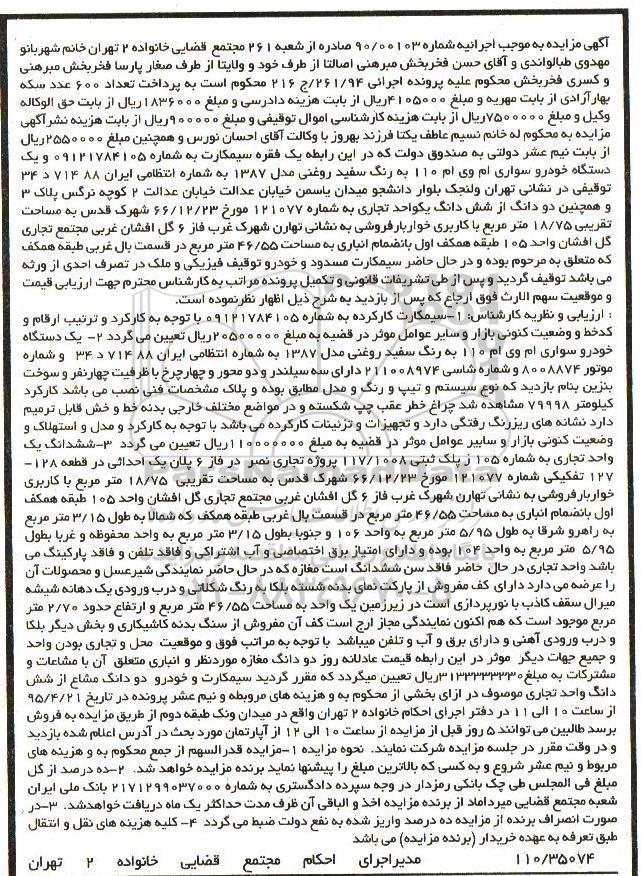 آگهی مزایده به موجب اجرائیه شماره ۹۰/۰۰۱۰۳ صادره از شعبه ۲۶۱ مجتمع قضایی خانواده ۲ تهران خانم شهربانو
مهدوی طبالوندی و آقای حسن فخربخش مبرهنی اصالتا از طرف خود و ولایتا از طرف صغار پارسا فخربخش مبرهنی
و کسری فخربخش محکوم علیه پرونده اجرائی ۲۶۱/۹۴/ج ۲۱۶ محکوم است به پرداخت تعداد ۶۰۰ عدد سکه
بهارآزادی از بابت مهریه و مبلغ ۴۱۰۵۰۰۰ریال از بابت هزینه دادرسی و مبلغ ۱۸۳۶۰۰۰ریال از بابت حق الوکاله
وکیل و مبلغ ۷۵۰۰۰۰۰ریال از بابت هزینه کارشناسی اموال توقیفی و مبلغ ۹۰۰۰۰۰ریال از بابت هزینه نشرآگهی
مزایده به محکوم له خانم نسیم عاطف یکتا فرزند بهروز با وکالت آقای احسان نورس و همچنین مبلغ ۲۵۵۰۰۰۰ریال
از بابت نیم عشر دولتی به صندوق دولت که در این رابطه یک فقره سیمکارت به شماره ۰۹۱۲۱۷۸۴۱۰۵ و یک
دستگاه خودرو سواری ام وی ام ۱۱۰ به رنگ سفید روغنی مدل ۱۳۸۷ به شماره انتظامی ایران ۸۸ ۷۱۴ د ۳۴
توقیفی در نشانی تهران ولنجک بلوار دانشجو میدان یاسمن خیابان عدالت خیابان عدالت ۲ کوچه نرگس پلاک ۳
و همچنین دو دانگ از شش دانگ یکواحد تجاری به شماره ۱۲۱۰۷۷ مورخ ۶۶/۱۲/۲۳ شهرک قدس به مساحت
تقریبی ۱۸/۷۵ متر مربع با کاربری خواربارفروشی به نشانی تهارن شهرک غرب فاز ۶ گل افشان غربی مجتمع تجاری
گل افشان واحد ۱۰۵ طبقه همکف اول بانضمام انباری به مساحت ۴۶/۵۵ متر مربع در قسمت بال غربی طبقه همکف
که متعلق به مرحوم بوده و در حال حاضر سیمکارت مسدود و خودرو توقیف فیزیکی و ملک در تصرف احدی از ورثه
می باشد توقیف گردید و پس از طی تشریفات قانونی و تکمیل پرونده مراتب به کارشناس محترم جهت ارزیابی قیمت
و موقعیت سهم الارث فوق ارجاع که پس از بازدید به شرح ذیل اظهار نظرنموده است.
: ارزیابی و نظریه کارشناس: ۱-سیمکارت کارکرده به شماره ۰۹۱۲۱۷۸۴۱۰۵ با توجه به کارکرد و ترتیب ارقام و
کدخط و وضعیت کنونی بازار و سایر عوامل موثر در قضیه به مبلغ ۲۰۵۰۰۰۰۰ریال تعیین می گردد ۲- یک دستگاه
خودرو سواری ام وی ام ۱۱۰ به رنگ سفید روغنی مدل ۱۳۸۷ به شماره انتظامی ایران ۸۸ ۷۱۴ د ۳۴ و شماره
موتور ۸۰۰۸۸۷۴ و شماره شاسی ۲۱۱۰۰۸۹۷۴ دارای سه سیلندر و دو محور و چهارچرخ با ظرفیت چهارنفر و سوخت
بنزین بنام بازدید که نوع سیستم و تیپ و رنگ و مدل مطابق بوده و پلاک مشخصات فنی نصب می باشد کارکرد
کیلومتر ۷۹۹۹۸ مشاهده شد چراغ خطر عقب چپ شکسته و در مواضع مختلف خارجی بدنه خط و خش قابل ترمیم
دارد نشانه های ریزرنگ رفتگی دارد و تجهیزات و تزئینات کارکرده می باشد با توجه به کارکرد و مدل و استهلاک و
وضعیت کنونی بازار و سایبر عوامل موثر در قضیه به مبلغ ۱۱۰۰۰۰۰۰۰ریال تعیین می گردد ۳-ششدانگ یک
واحد تجاری به شماره ۱۰۵ از پلک ثبتی ۱۱۷/۱۰۰۸ پروژه تجاری نصر در فاز ۶ پلان یک احداثی در قطعه ۱۲۸-
۱۲۷ تفکیکی شماره ۱۲۱۰۷۷ مورخ ۶۶/۱۲/۲۳ شهرک قدس به مساحت تقریبی ۱۸/۷۵ متر مربع با کاربری
خواربارفروشی به نشانی تهارن شهرک غرب فاز ۶ گل افشان غربی مجتمع تجاری گل افشان واحد ۱۰۵ طبقه همکف
اول بانضمام انباری به مساحت ۴۶/۵۵ متر مربع در قسمت بال غربی طبقه همکف که شمالا به طول ۳/۱۵ متر مربع
به راهرو شرقا به طول ۵/۹۵ متر مربع به واحد ۱۰۶ و جنوبا بطول ۳/۱۵ متر مربع به واحد محفوظه و غربا بطول
۵/۹۵ متر مربع به واحد ۱۰۴ بوده و دارای امتیاز برق اختصاصی و آب اشتراکی و فاقد تلفن و فاقد پارکینگ می
باشد واحد تجاری در حال حاضر فاقد سن ششدانگ است مغازه که در حال حاضر نمایندگی شیرعسل و محصولات آن
را عرضه می دارد دارای کف مفروش از پارکت نمای بدنه شسته بلکا به رنگ شکلاتی و درب ورودی یک دهانه شیشه
میرال سقف کاذب با نورپردازی است در زیرزمین یک واحد به مساحت ۴۶/۵۵ متر مربع و ارتفاع حدود ۲/۷۰ متر
مربع موجود است که هم اکنون نمایندگی مجاز ارج است کف آن مفروش از سنگ بدنه کاشیکاری و بخش دیگر بلکا
و درب ورودی آهنی و دارای برق و آب و تلفن میباشد با توجه به مراتب فوق و موقعیت محل و تجاری بودن واحد
و جمیع جهات دیگر موثر در این رابطه قیمت عادلانه روز دو دانگ مغازه موردنظر و انباری متعلق آن با مشاعات و
مشترکات به مبلغ ۳۱۳۳۳۳۳۳۳۰ریال تعیین میگردد که مقرر گردید سیمکارت و خودرو دو دانگ مشاع از شش
دانگ واحد تجاری موصوف در ازای بخشی از محکوم به و هزینه های مروبطه و نیم عشر پرونده در تاریخ ۹۵/۴/۲۱
از ساعت ۱۰ الی ۱۱ در دفتر اجرای احکام خانواده ۲ تهران واقع در میدان ونک طبقه دوم از طریق مزایده به فروش
برسد طالبین می توانند ۵ روز قبل از مزایده از ساعت ۱۰ الی ۱۲ از آپارتمان مورد بحث در آدرس اعلام شده بازدید
و در وقت مقرر در جلسه مزایده شرکت نمایند. نحوه مزایده ۱-مزایده قدرالسهم از جمع محکوم به و هزینه های
مربوط و نیم عشر شروع و به کسی که بالاترین مبلغ را پیشنهاد نماید برنده مزایده خواهد شد. ۲-ده درصد از گل
مبلغ فی المجلس طی چک بانکی رمزدار در وجه سپرده دادگستری به شماره ۲۱۷۱۲۹۹۰۳۷۰۰۰ بانک ملی ایران
شعبه مجتمع قضایی میرداماد از برنده مزایده اخذ و الباقی آن ظرف مدت حداکثر یک ماه دریافت خواهدشد. ۳-در
صورت انصراف برنده از مزایده ده درصد واریز شده به نفع دولت ضبط می گردد ۴- کلیه هزینه های نقل و انتقال
طبق تعرفه به عهده خریدار (برنده مزایده) می باشد
۱۱۰/۳۵۰۷۴ مدیراجرای احکام مجتمع قضایی خانواده ۲ تهران